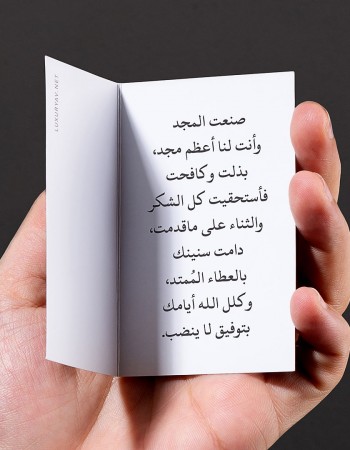 صنعت المجد
وأنت لنا أعظم مجد،
بذلت وكافحت
فأستحقيت كل الشكر
والثناء على ماقدمت،
دامت سنينك
بالعطاء المُمتد،
وكلل الله أيامك
بتوفيق لا ينضب.